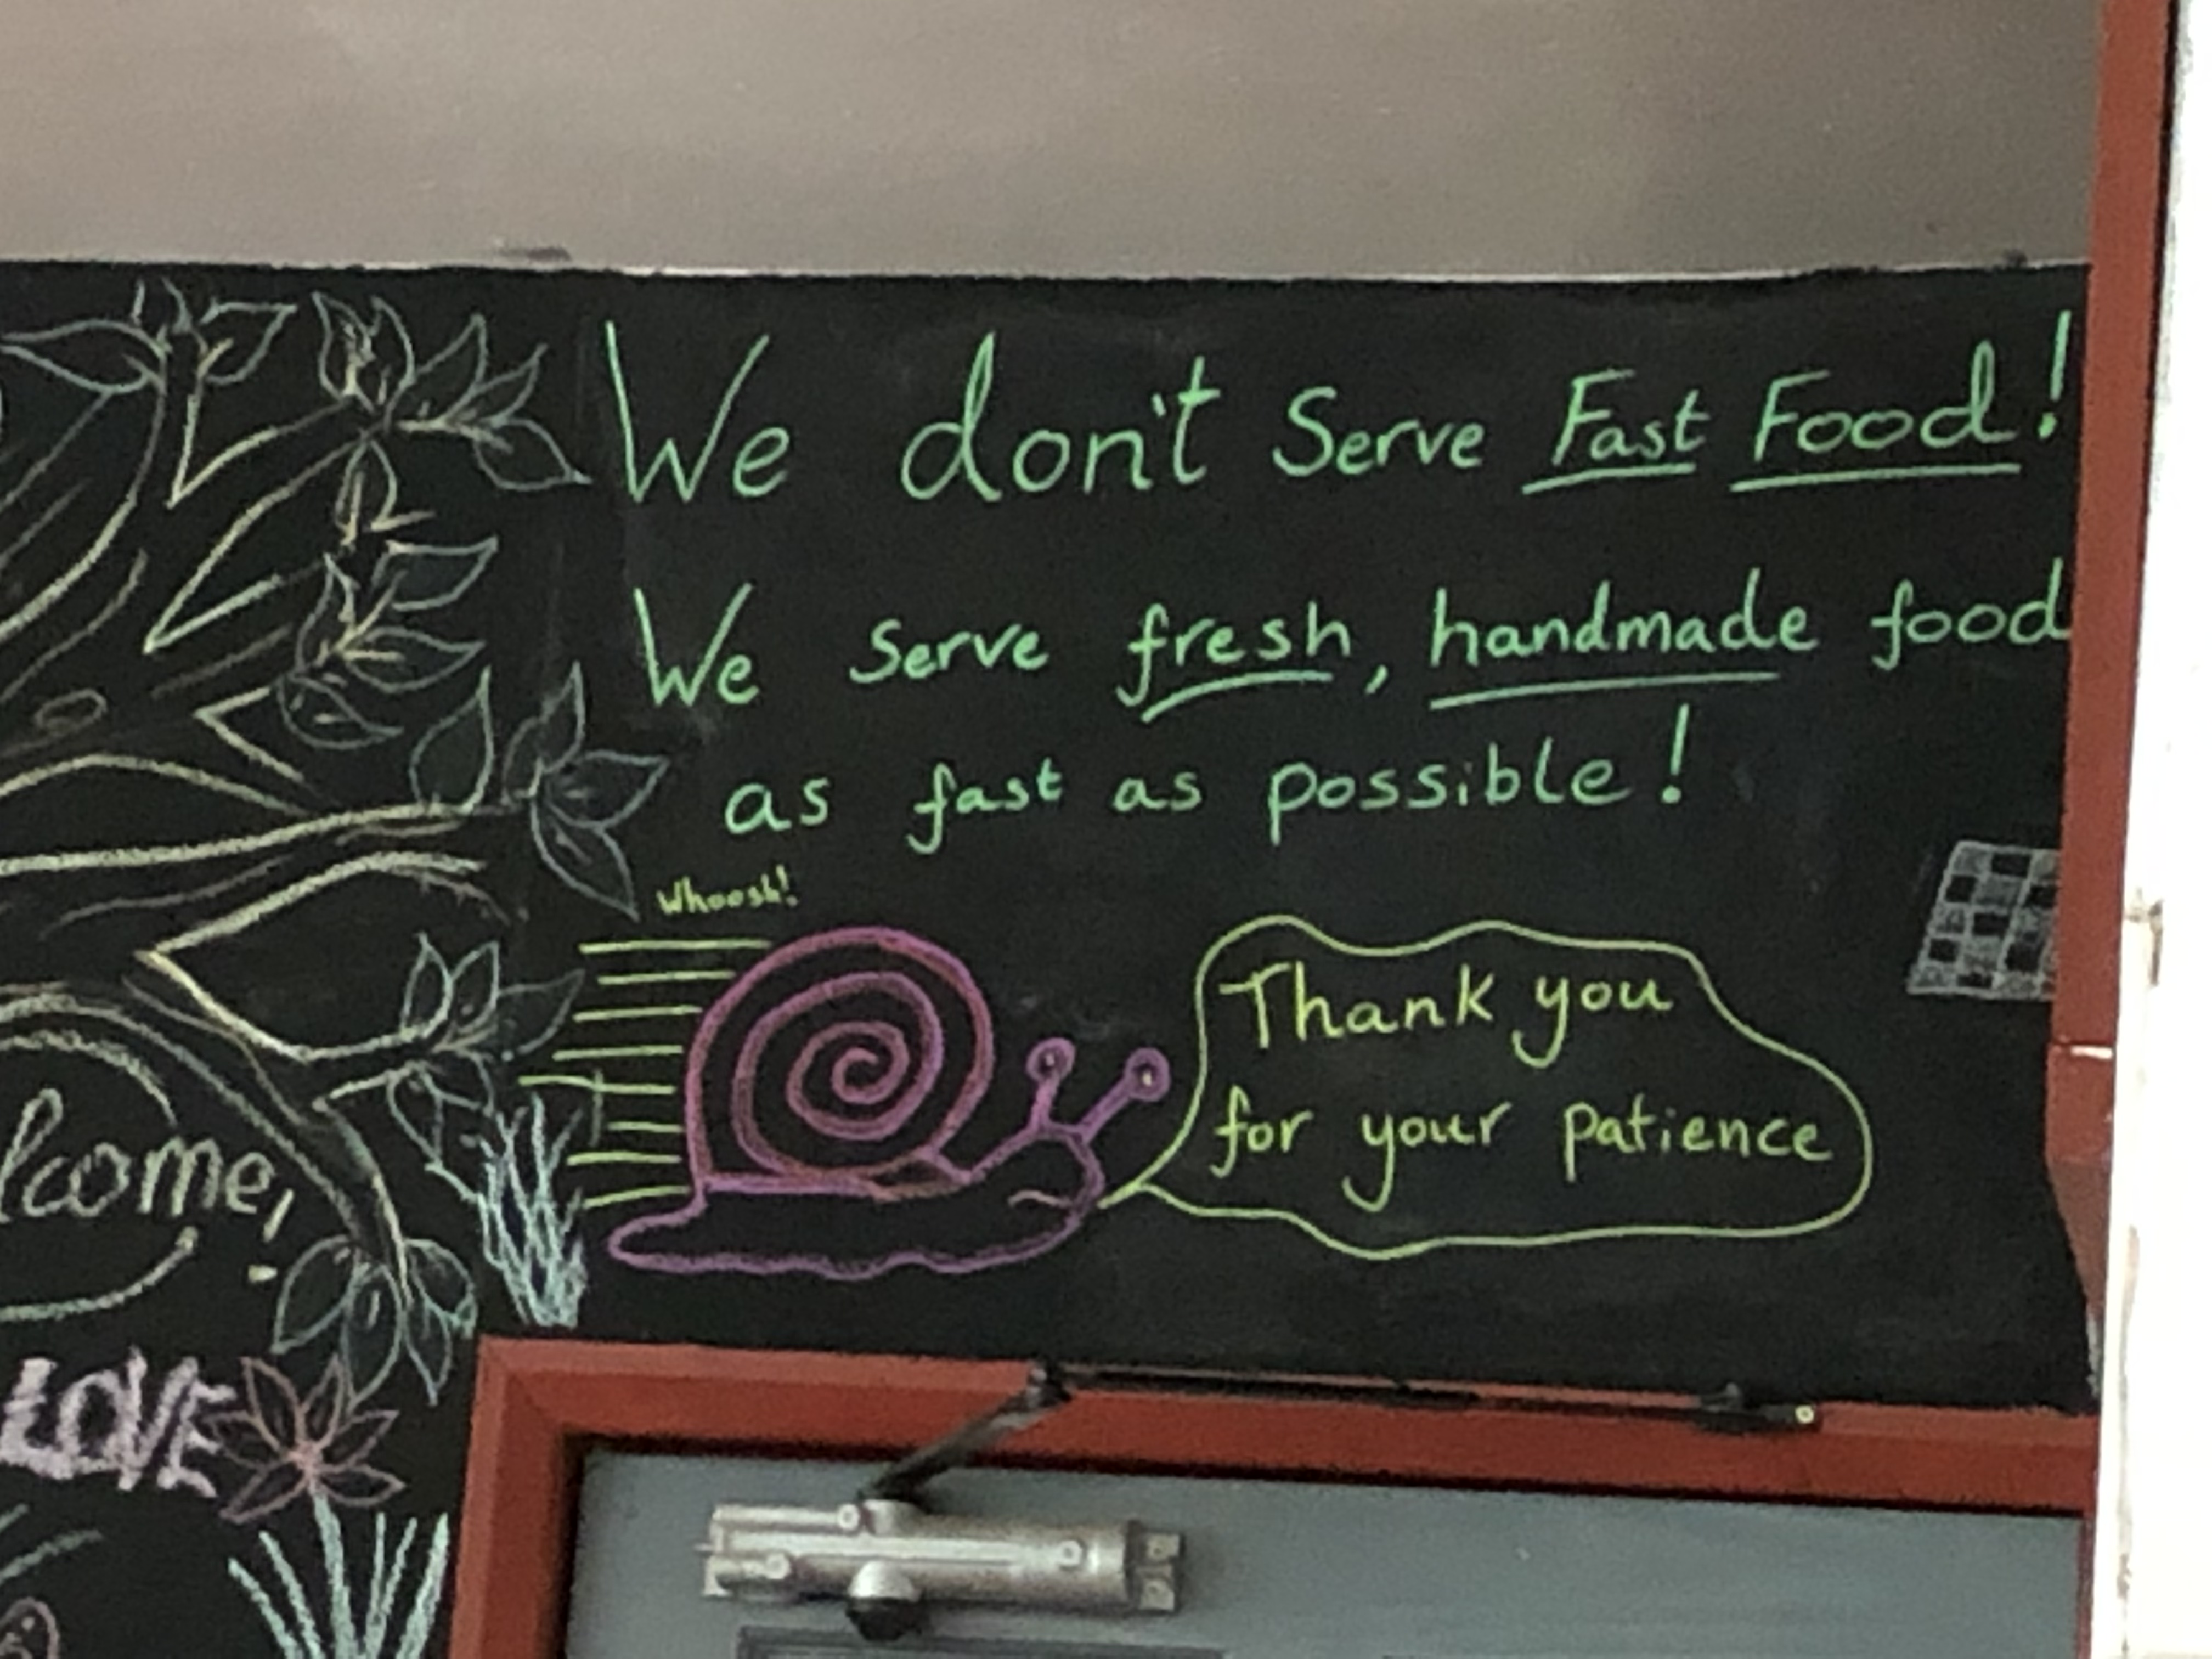 We don't Serve Fast Food!
We serve fresh, handmade food
as fast as possible!
Whoosh!
Thank you
for your patience
lcome!
LOVE